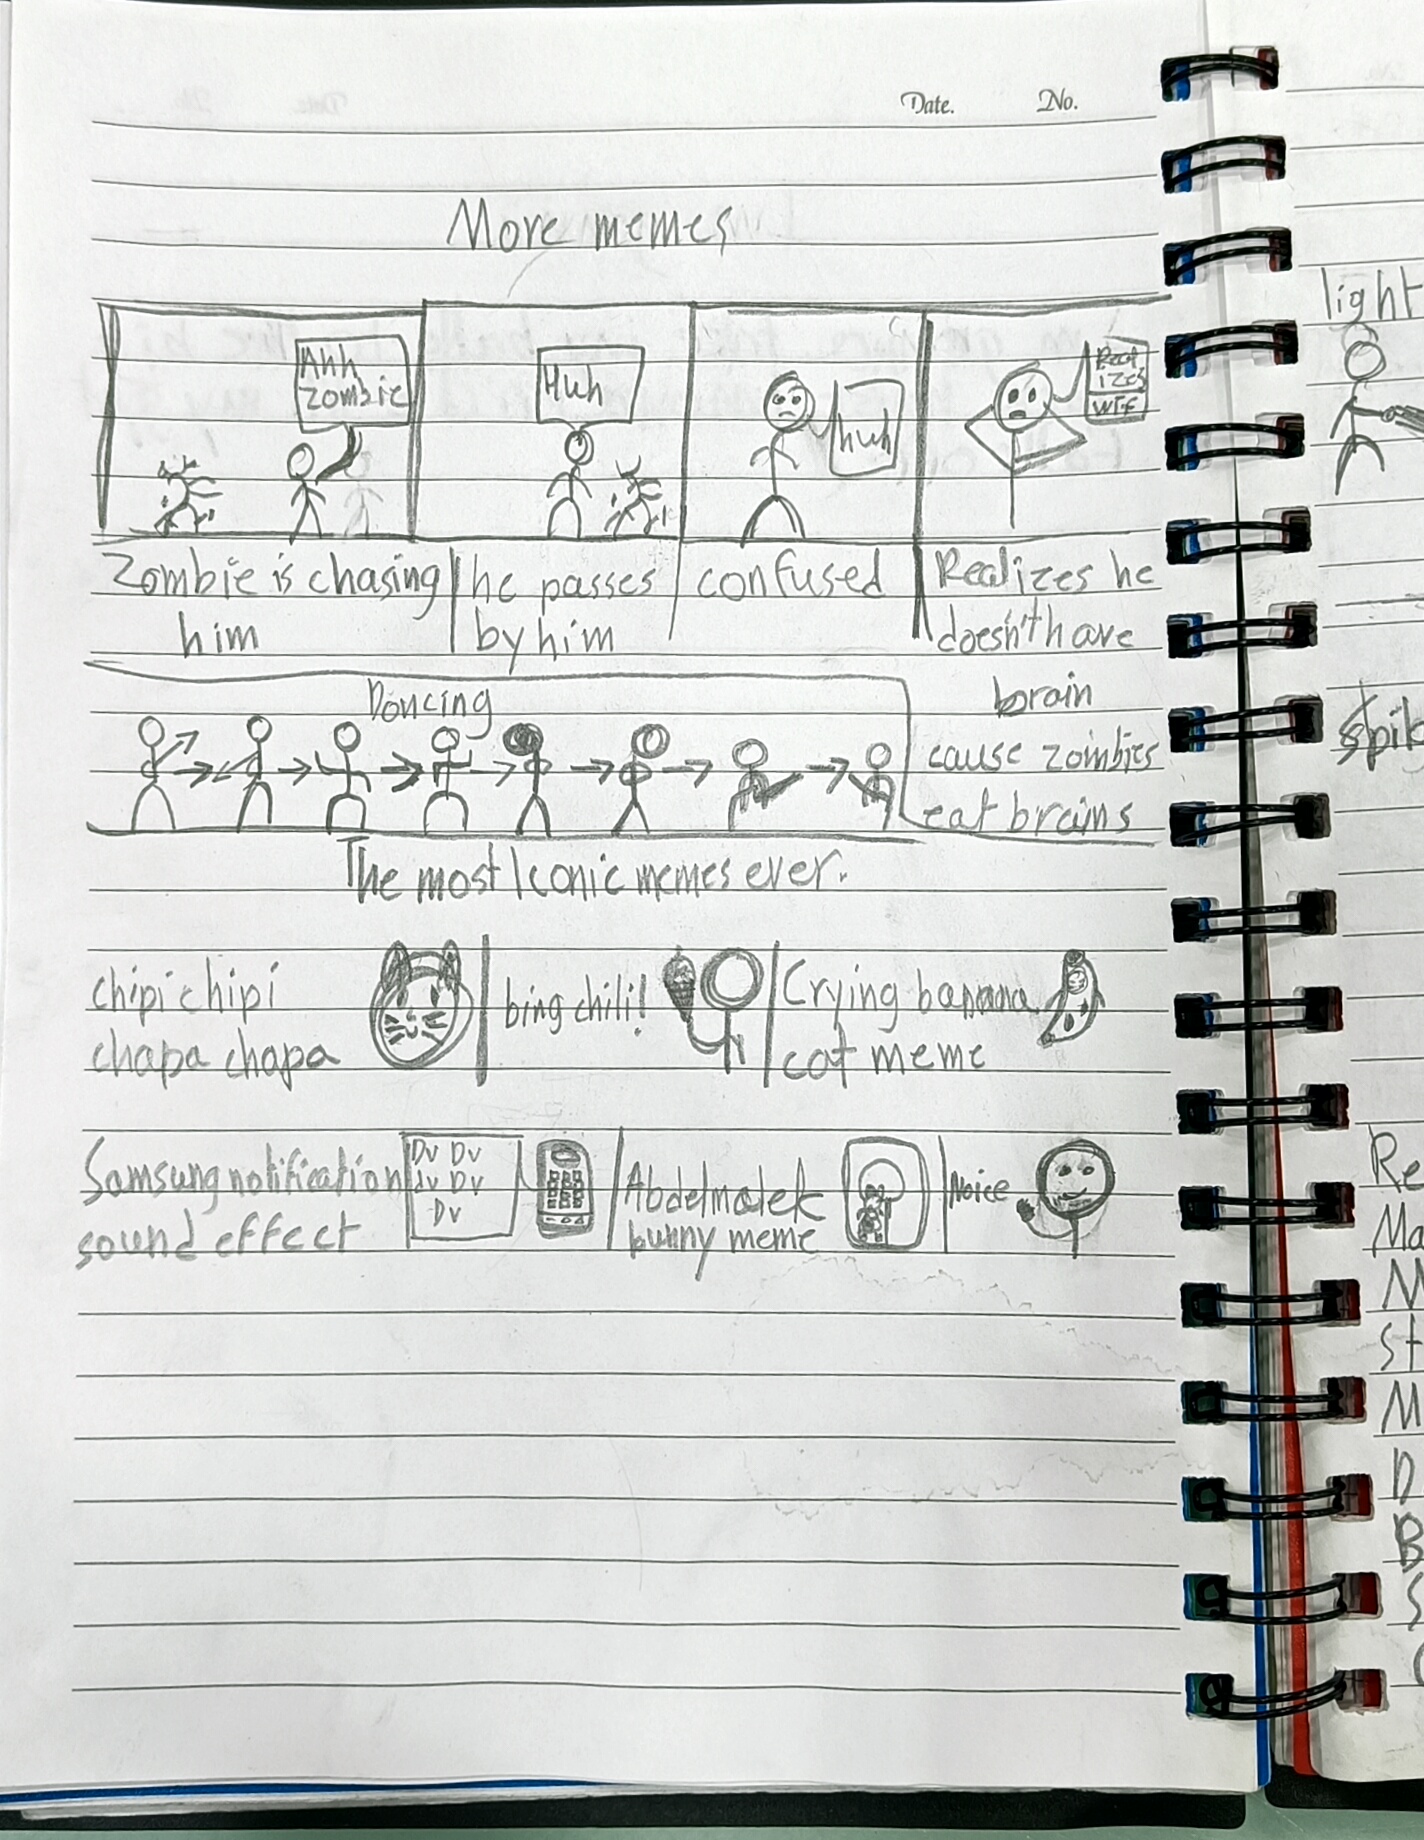 Date. No.
More memes
Ahh
zombie
Huh
huh
Real
izes
WTF
Zombie is chasing
him
he passes
by him
confused
Realizes he
doesn't have
brain
cause zombies
eat brains
Dancing
The most Iconic memes ever.
chipi chipi
chapa chapa
bing chili!
Crying banana
cat meme
Samsung notification
sound effect
Dv Dv
dv Dv
Dv
Abdelmalek
bunny meme
Noice
light
spik
Re
Ma
M
st
M
D
B
S